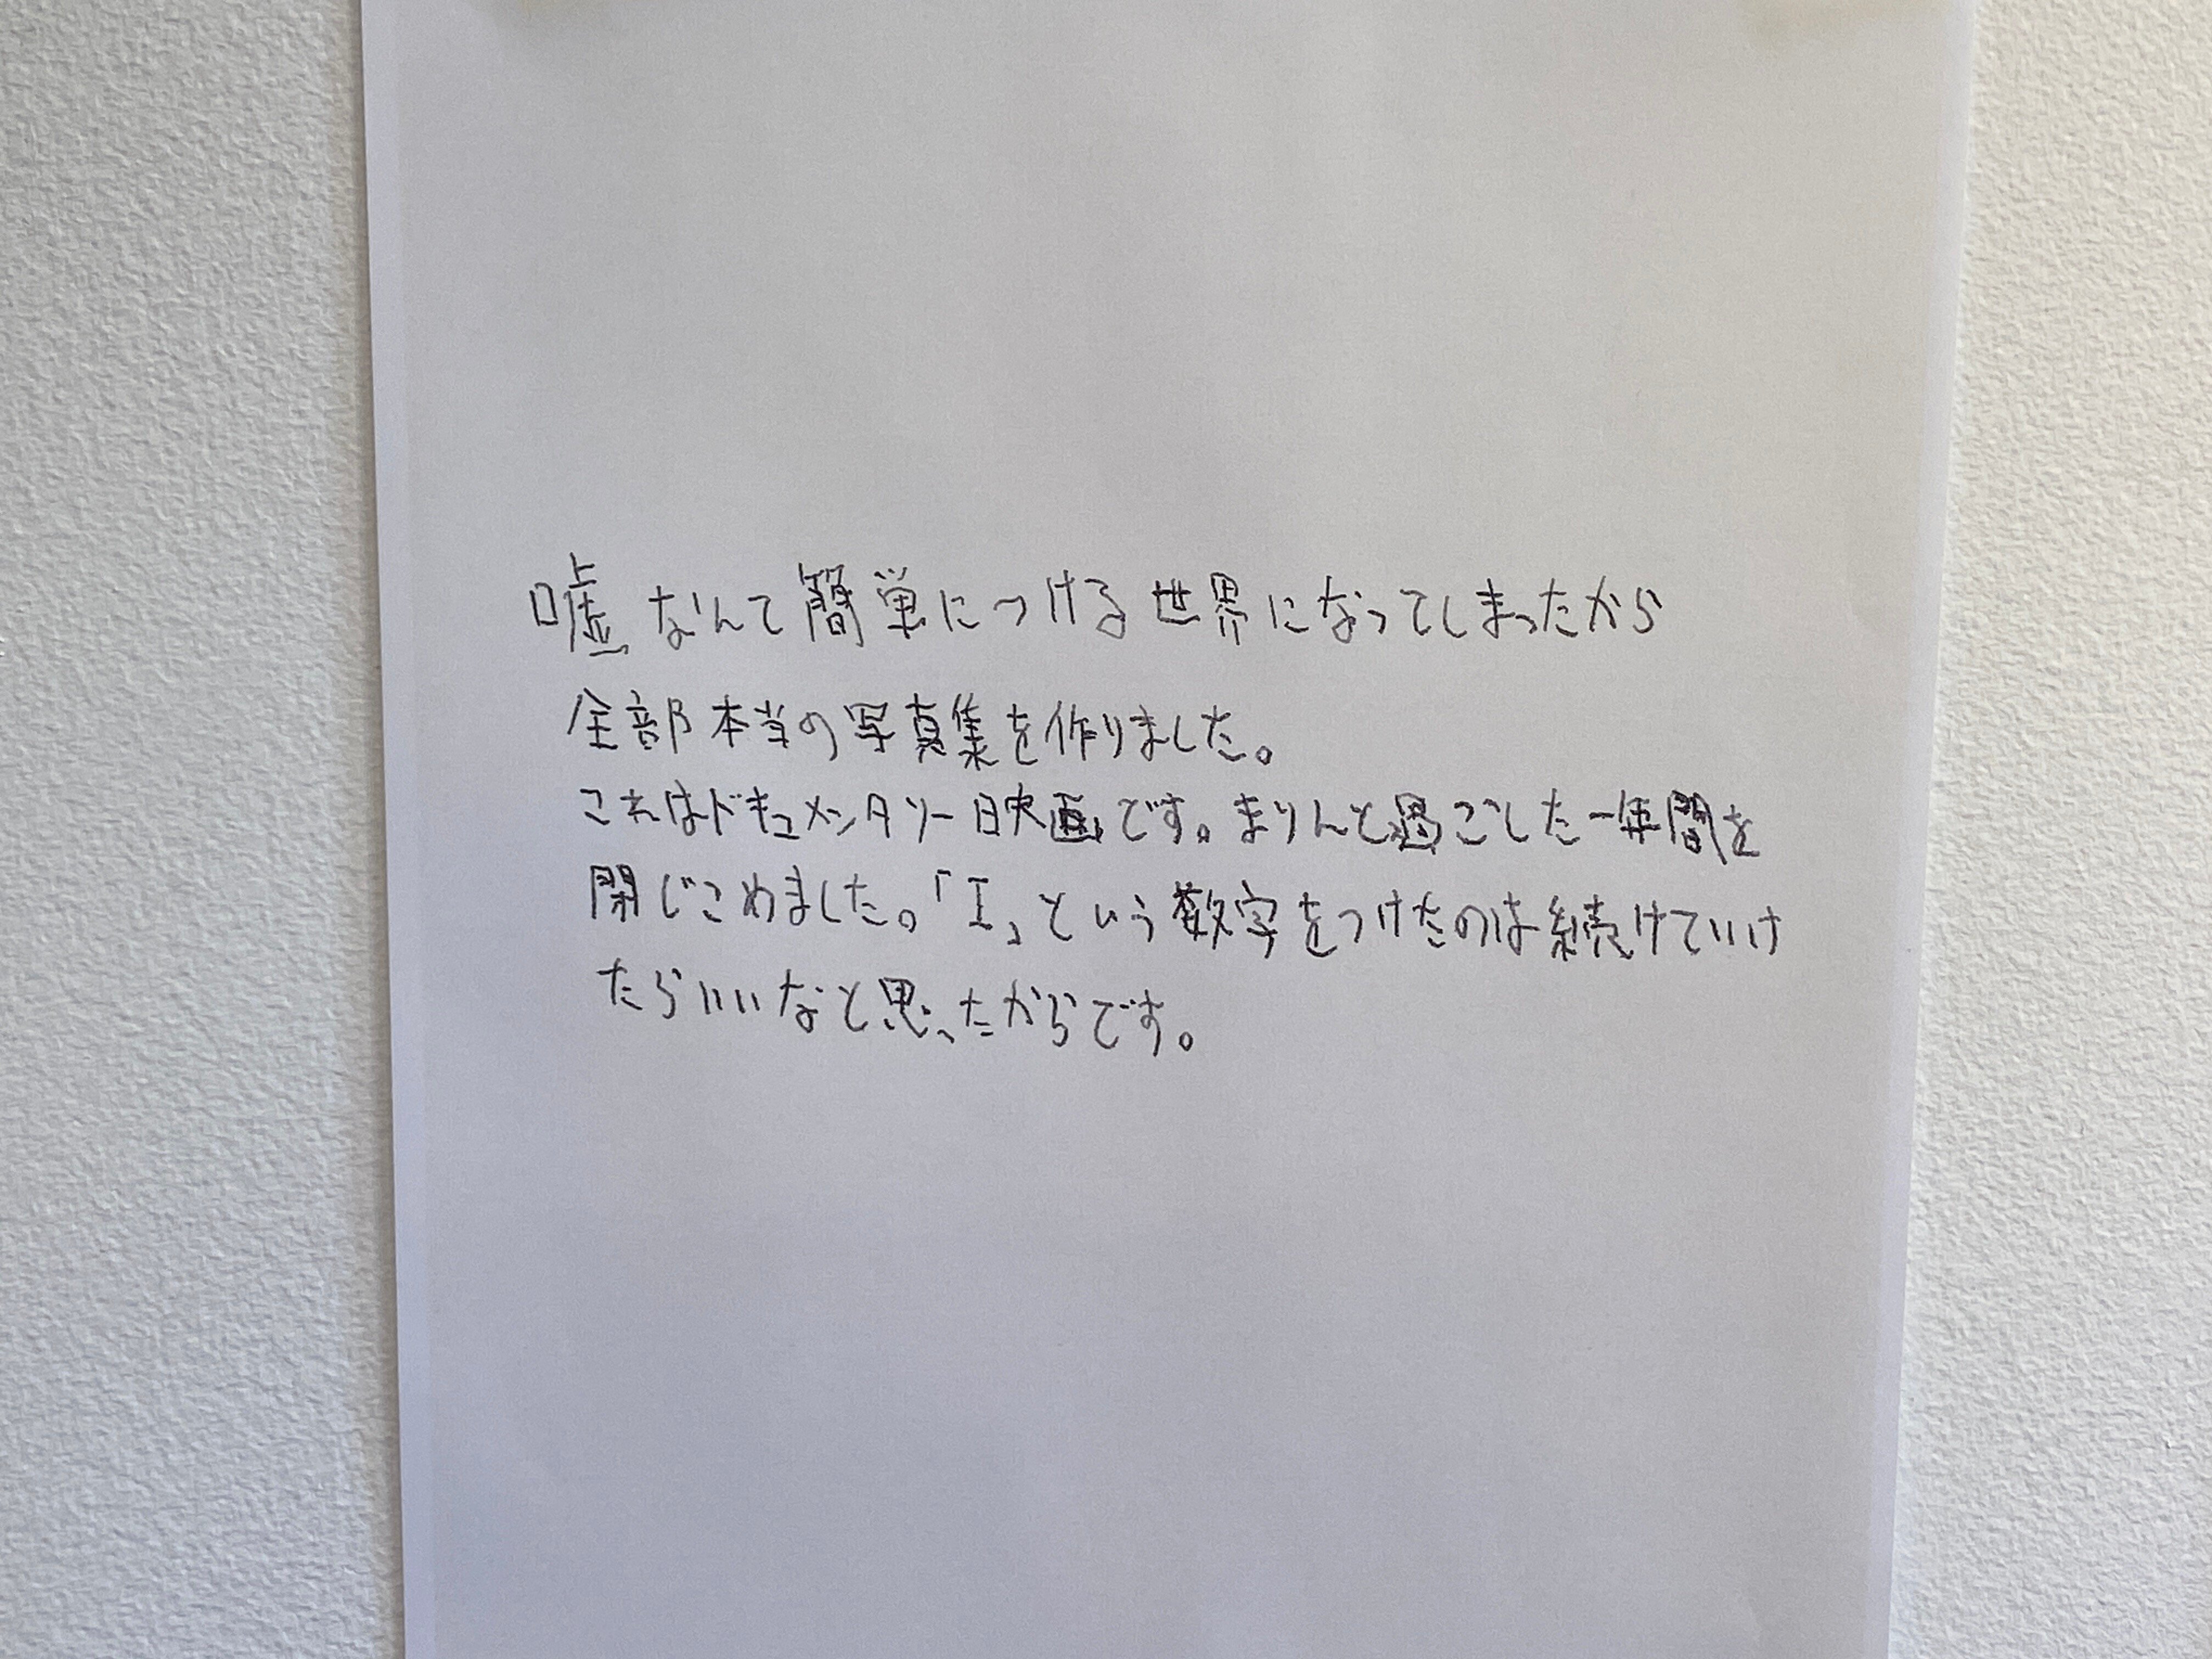 嘘なんて簡単につける世界になってしまったから
全部本当の写真集を作りました。
これはドキュメンタリー映画です。まりんと過ごした一年間を
閉じこめました。「I」という数字をつけたのは続けていけ
たらいいなと思ったからです。